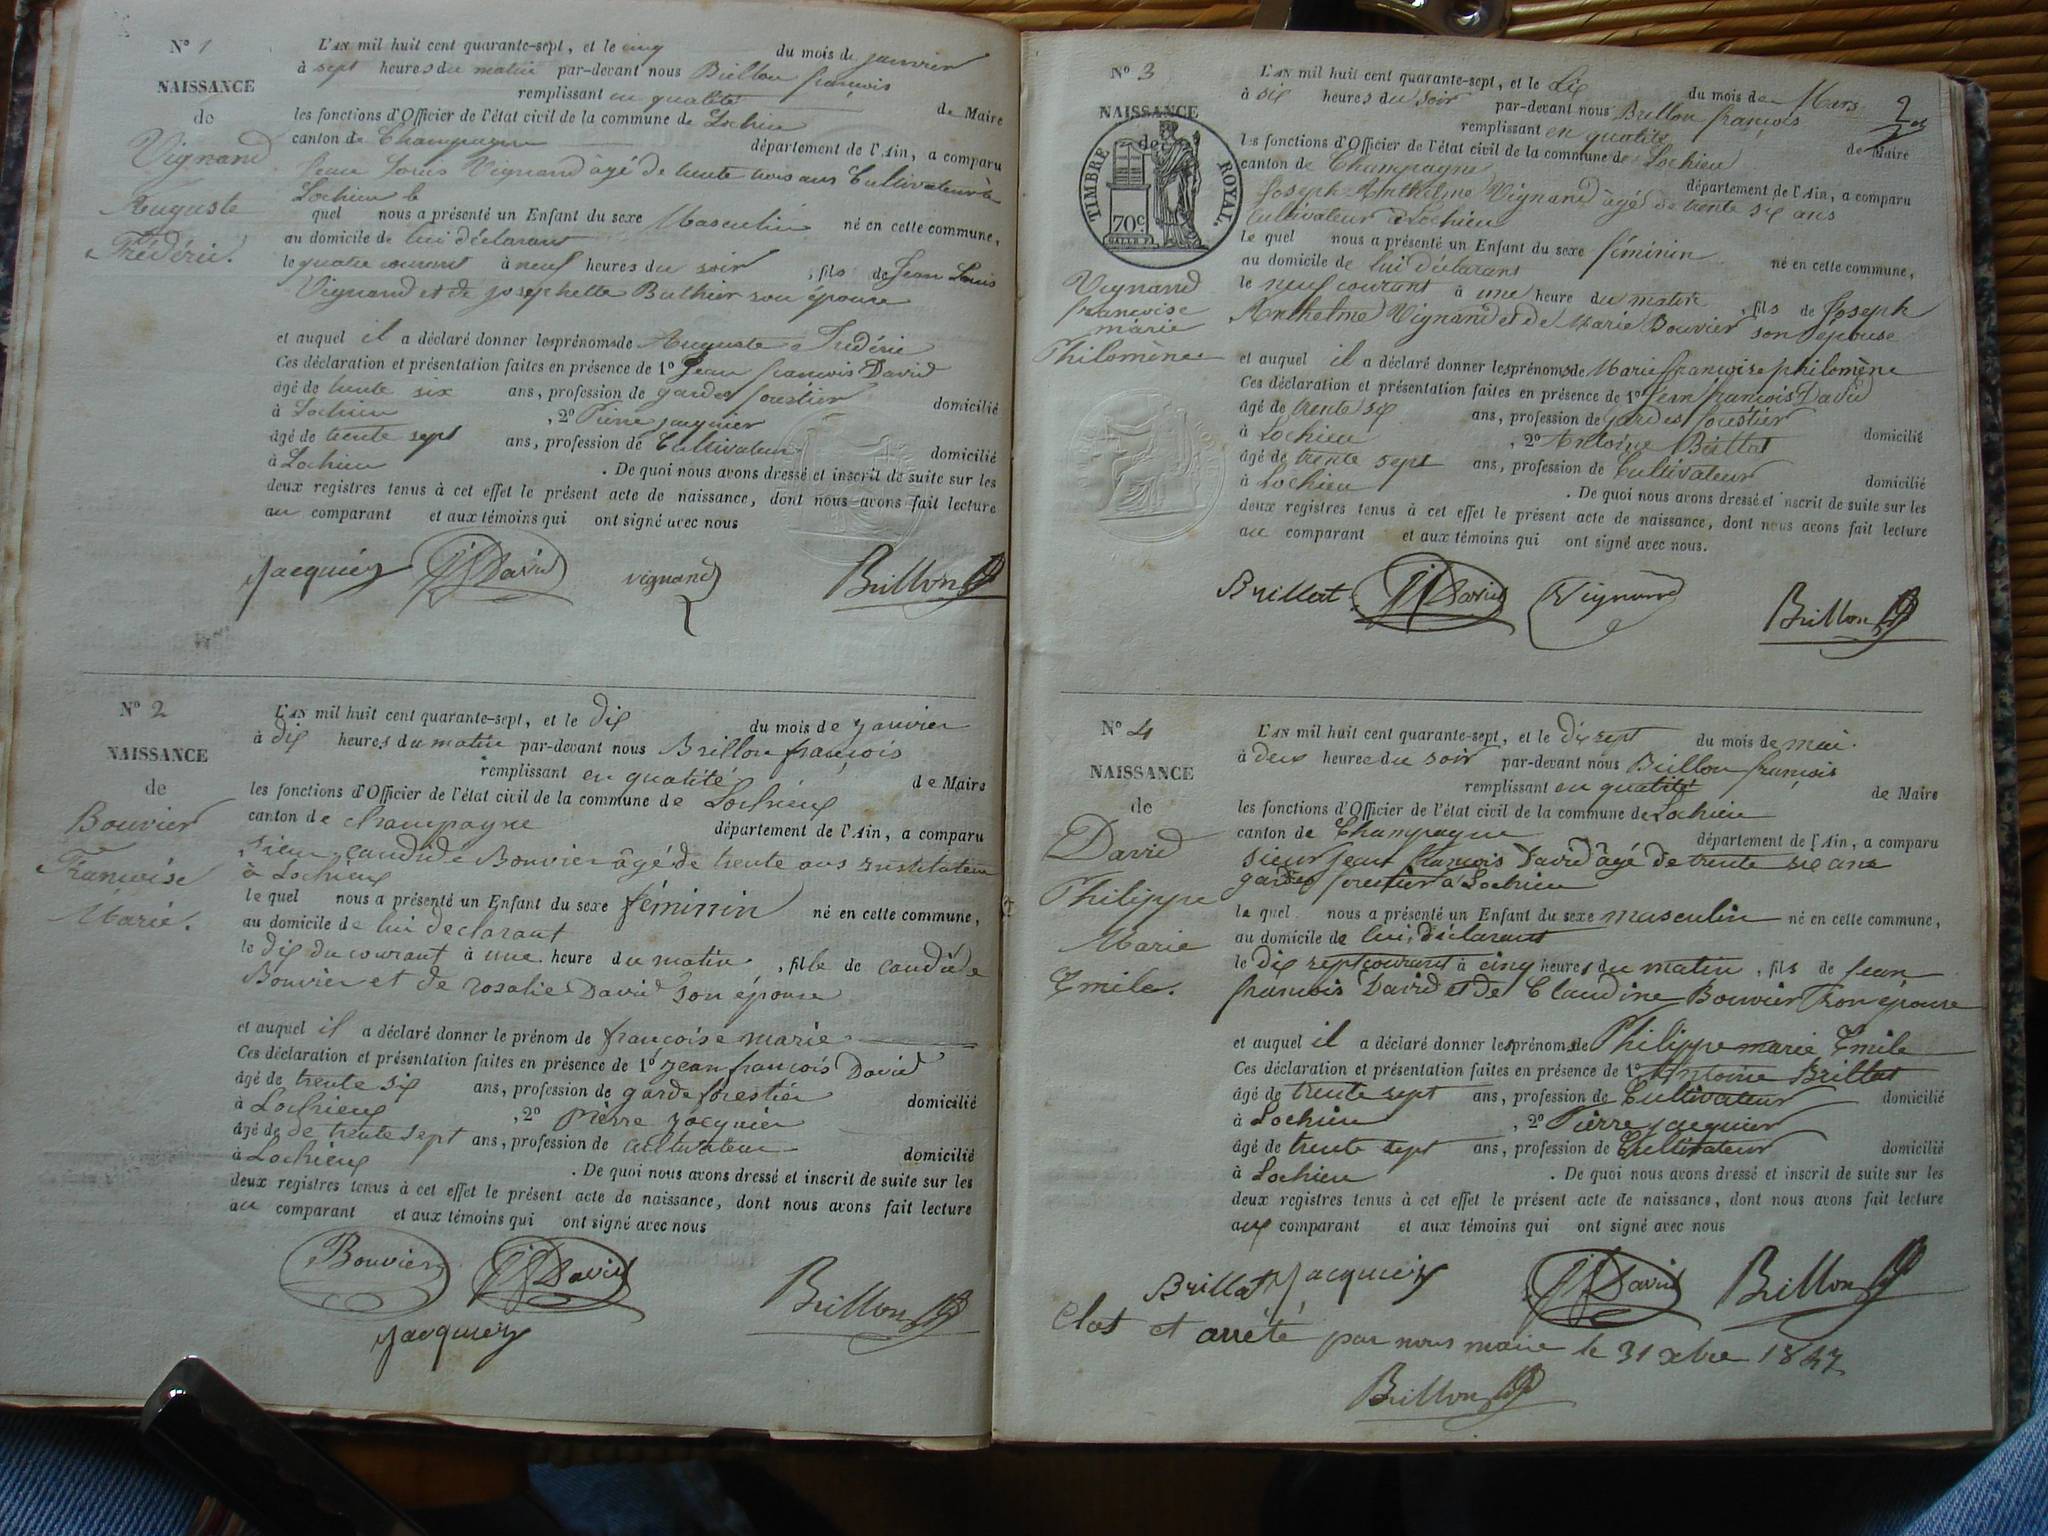 N° 1
NAISSANCE
de
Vignand
Auguste
Frédéric.
L'AN mil huit cent quarante-sept, et le cinq du mois de janvier
à sept heures du matin par-devant nous Brillon françois
remplissant en qualité de Maire
les fonctions d'Officier de l'état civil de la commune de Lochieu
canton de Champagne département de l'Ain, a comparu
Jean Louis Vignand âgé de trente trois ans Cultivateur à
Lochieu le
quel nous a présenté un Enfant du sexe Masculin né en cette commune,
au domicile de lui déclarant
le quatre courant à neuf heures du soir, fils de Jean Louis
Vignand et de Josephette Buthier son épouse
et auquel il a déclaré donner les prénoms de Auguste Frédéric
Ces déclaration et présentation faites en présence de 1° Jean françois David
âgé de trente six ans, profession de garde forestier domicilié
à Lochieu, 2° Pierre jacquier
âgé de trente sept ans, profession de Cultivateur domicilié
à Lochieu. De quoi nous avons dressé et inscrit de suite sur les
deux registres tenus à cet effet le présent acte de naissance, dont nous avons fait lecture
au comparant et aux témoins qui ont signé avec nous
Jacquier JfDavid vignand Brillon
N° 2
NAISSANCE
de
Bouvier
Françoise
Marie.
L'AN mil huit cent quarante-sept, et le dix du mois de janvier
à dix heures du matin par-devant nous Brillon françois
remplissant en qualité de Maire
les fonctions d'Officier de l'état civil de la commune de Lochieu
canton de champagne département de l'Ain, a comparu
sieur candide Bouvier âgé de trente ans instituteur
à Lochieu
le quel nous a présenté un Enfant du sexe féminin né en cette commune,
au domicile de lui declarant
le dix du courant à une heure du matin, fille de candide
Bouvier et de rosalie David son épouse
et auquel il a déclaré donner le prénom de françoise marie
Ces déclaration et présentation faites en présence de 1° jean françois David
âgé de trente six ans, profession de garde forestier domicilié
à Lochieu, 2° pierre jacquier
âgé de de trente sept ans, profession de cultivateur domicilié
à Lochieu. De quoi nous avons dressé et inscrit de suite sur les
deux registres tenus à cet effet le présent acte de naissance, dont nous avons fait lecture
au comparant et aux témoins qui ont signé avec nous
Bouvier JfDavid Brillon
Jacquier
2
N° 3
NAISSANCE
de
TIMBRE ROYAL.
70c
Vignand
françoise
marie
Philomène
L'AN mil huit cent quarante-sept, et le dix du mois de Mars
à six heures du soir par-devant nous Brillon françois
remplissant en qualité de Maire
les fonctions d'Officier de l'état civil de la commune de Lochieu
canton de Champagne département de l'Ain, a comparu
Joseph Anthelme Vignand âgé de trente six ans
Cultivateur à Lochieu
le quel nous a présenté un Enfant du sexe féminin né en cette commune,
au domicile de lui déclarant
le neuf courant à une heure du matin, fils de Joseph
Anthelme Vignand et de Marie Bouvier son épouse
et auquel il a déclaré donner les prénoms de Marie françoise philomène
Ces déclaration et présentation faites en présence de 1° Jean françois David
âgé de trente six ans, profession de garde forestier domicilié
à Lochieu, 2° Antoine Brillat
âgé de trente sept ans, profession de Cultivateur domicilié
à Lochieu. De quoi nous avons dressé et inscrit de suite sur les
deux registres tenus à cet effet le présent acte de naissance, dont nous avons fait lecture
au comparant et aux témoins qui ont signé avec nous.
Brillat JfDavid Vignand Brillon
N° 4
NAISSANCE
de
David
Philippe
Marie
Emile.
L'AN mil huit cent quarante-sept, et le dix sept du mois de mai
à deux heures du soir par-devant nous Brillon françois
remplissant en qualité de Maire
les fonctions d'Officier de l'état civil de la commune de Lochieu
canton de Champagne département de l'Ain, a comparu
sieur jean françois David âgé de trente six ans
garde forestier à Lochieu
le quel nous a présenté un Enfant du sexe masculin né en cette commune,
au domicile de lui déclarant
le dix sept courant à cinq heures du matin, fils de Jean
françois David et de Claudine Bouvier son épouse
et auquel il a déclaré donner les prénoms de Philippe marie Emile
Ces déclaration et présentation faites en présence de 1° Antoine Brillat
âgé de trente sept ans, profession de Cultivateur domicilié
à Lochieu, 2° Pierre jacquier
âgé de trente sept ans, profession de Cultivateur domicilié
à Lochieu. De quoi nous avons dressé et inscrit de suite sur les
deux registres tenus à cet effet le présent acte de naissance, dont nous avons fait lecture
aux comparant et aux témoins qui ont signé avec nous
Brillat Jacquier JfDavid Brillon
Clos et arrêté par nous maire le 31 xbre 1847
Brillon